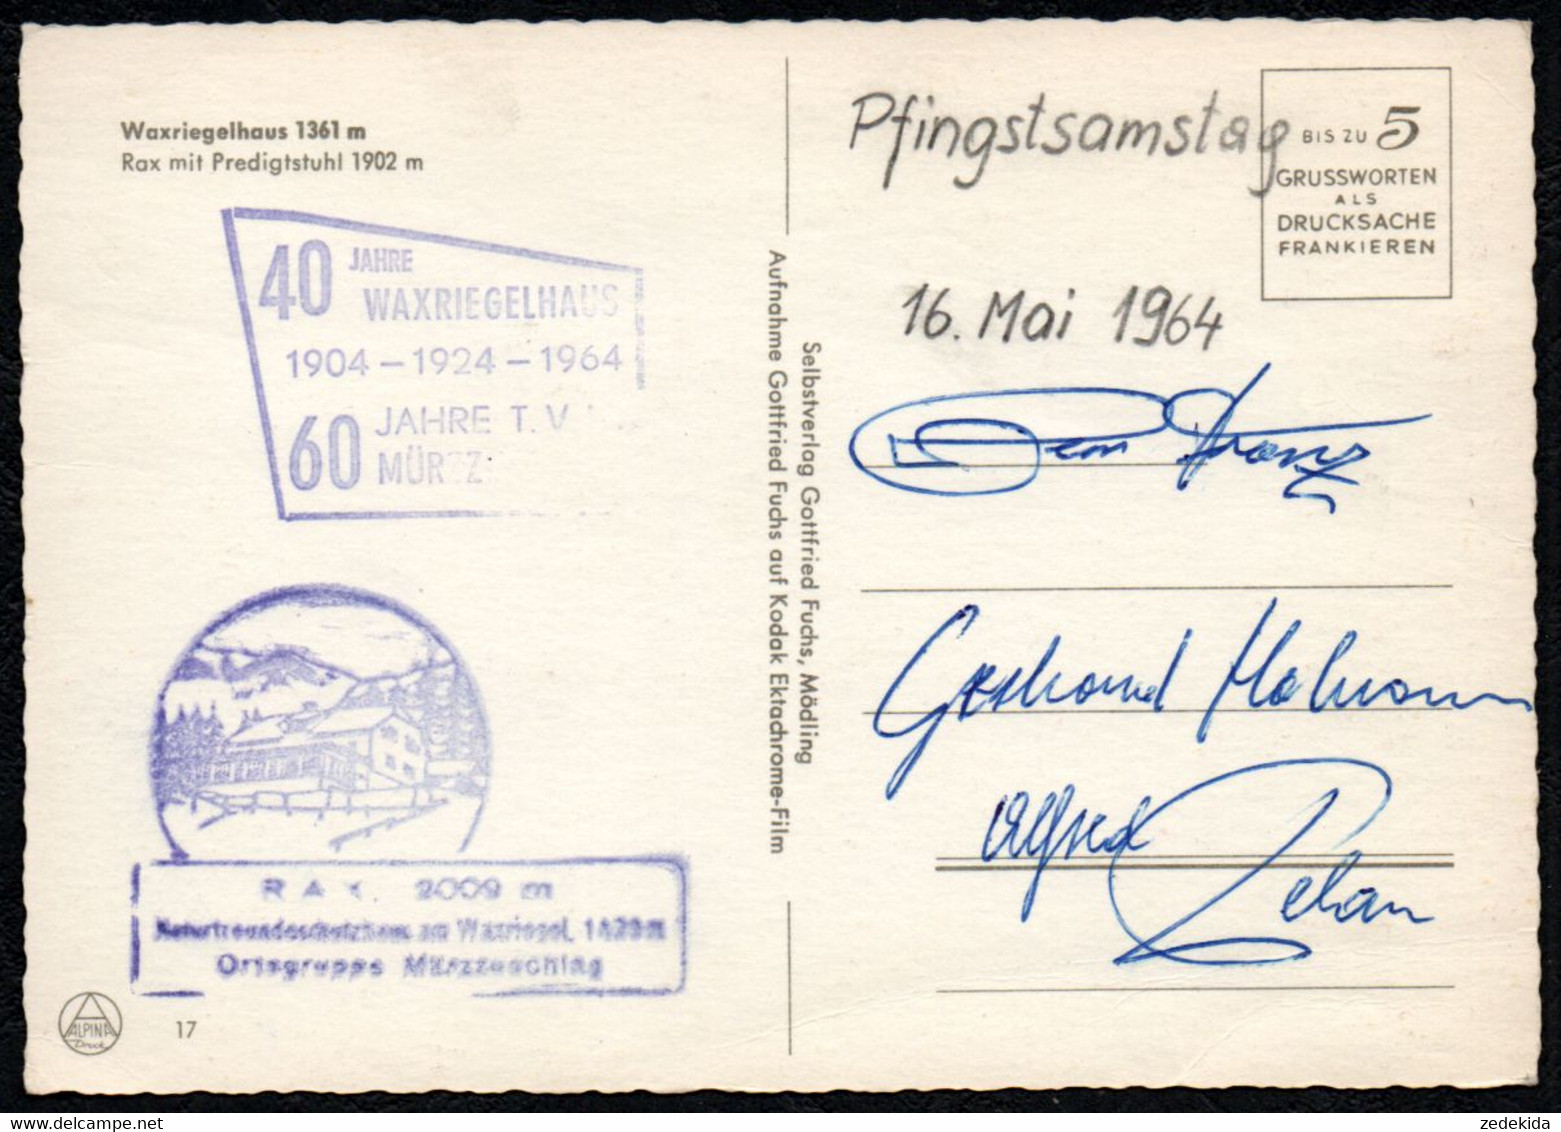 Waxriegelhaus 1361 m
Rax mit Predigtstuhl 1902 m
40 JAHRE
WAXRIEGELHAUS
1904 – 1924 – 1964
60 JAHRE T. V
MÜRZZ
RAX 2009 m
Naturfreundeschutzhaus am Waxriegel,
Ortsgruppe Mürzzuschlag
ALPINA
Druck
17
Selbstverlag Gottfried Fuchs, Mödling
Aufnahme Gottfried Fuchs auf Kodak Ektachrome-Film
Pfingstsamstag
BIS ZU 5
GRUSSWORTEN
ALS
DRUCKSACHE
FRANKIEREN
16. Mai 1964
Franz
Gerhard
Alfred
zedekida